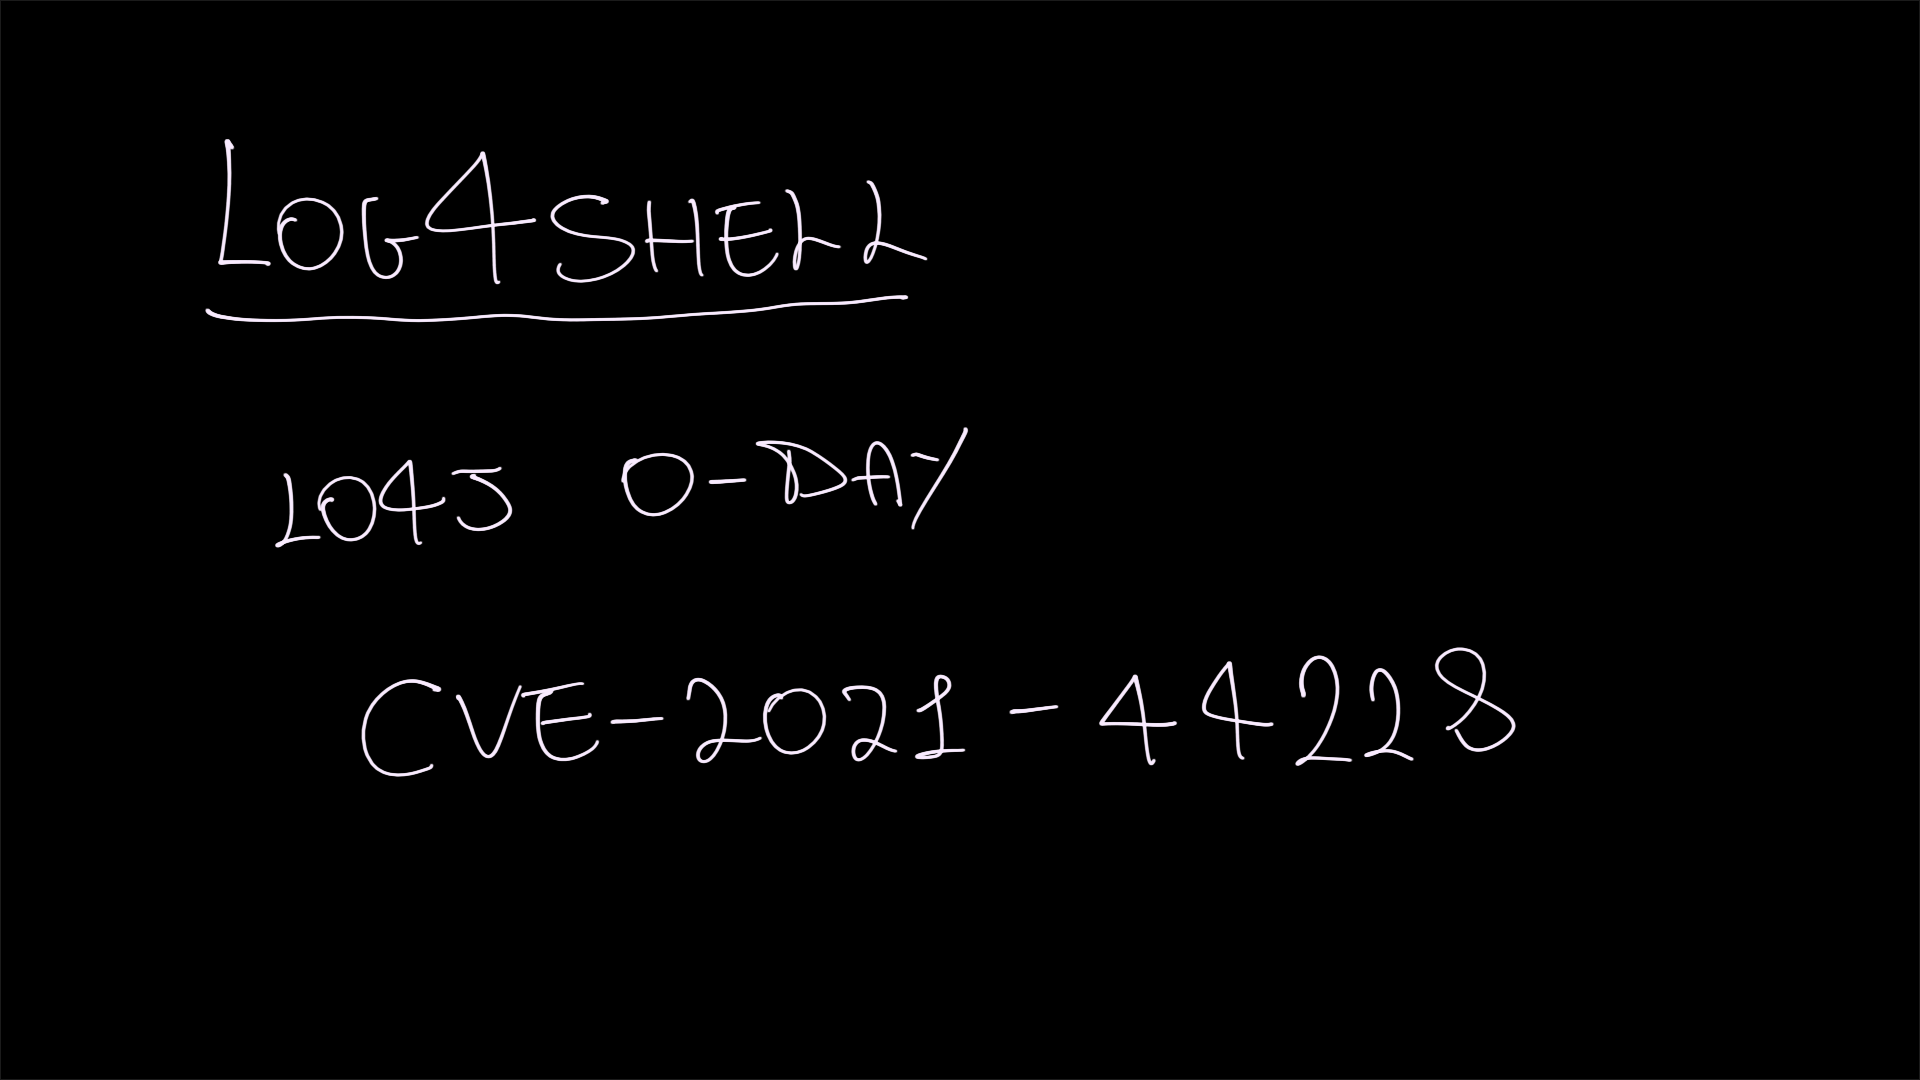 LOG4SHELL
LO4J 0-DAY
CVE-2021-44228